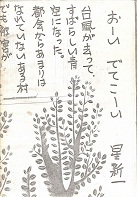 おーい でてこーい
星 新一
台風が去って、
すばらしい青
空になった。
都会からあまりは
なれていないある村
でも